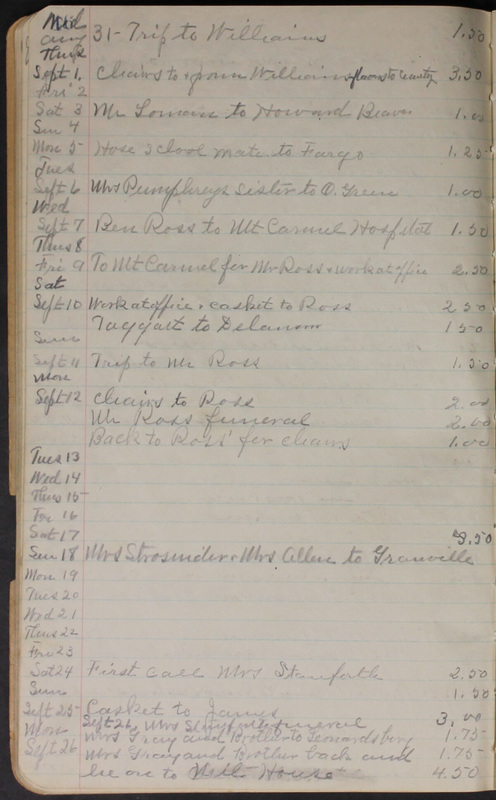 Wed
Aug 31- Trip to Williams 1.50
Thurs
Sept 1, Chairs to & from Williams flowers to cemetery 3,50
Fri 2
Sat 3 Mr to Howard Beaver 1.00
Sun 4
Mon 5- Hose School mate to Fargo 1.25
Tues
Sept 6 Mrs Pumphreys Sister to O. Green 1.00
Wed
Sept 7 Ben Ross to Mt Carmel Hospital 1.50
Thurs 8
Fri 9 To Mt Carmel for Mr Ross & work at office 2.50
Sat
Sept 10 Work at office & casket to Ross 2 50
Taggart to 1 50
Sun
Sept 11 Trip to Mr Ross 1.50
Mon
Sept 12 Chairs to Ross 2.00
Mr Ross funeral 2.00
Back to Ross' for chairs 1.00
Tues 13
Wed 14
Thurs 15
Fri 16
Sat 17
Sun 18 Mrs Strosnider & Mrs Allen to Granville 3.50
Mon 19
Tues 20
Wed 21
Thurs 22
Fri 23
Sat 24 First call Mrs Staniforth 2.50
Sun 1.50
Sept 25- Casket to James 3,00
Sept 26, Mrs funeral
Mon Mrs Gray and Brother to Leonardsburg 1.75
Sept 26 Mrs Gray and Brother back and 1.75
he on to House 4.50